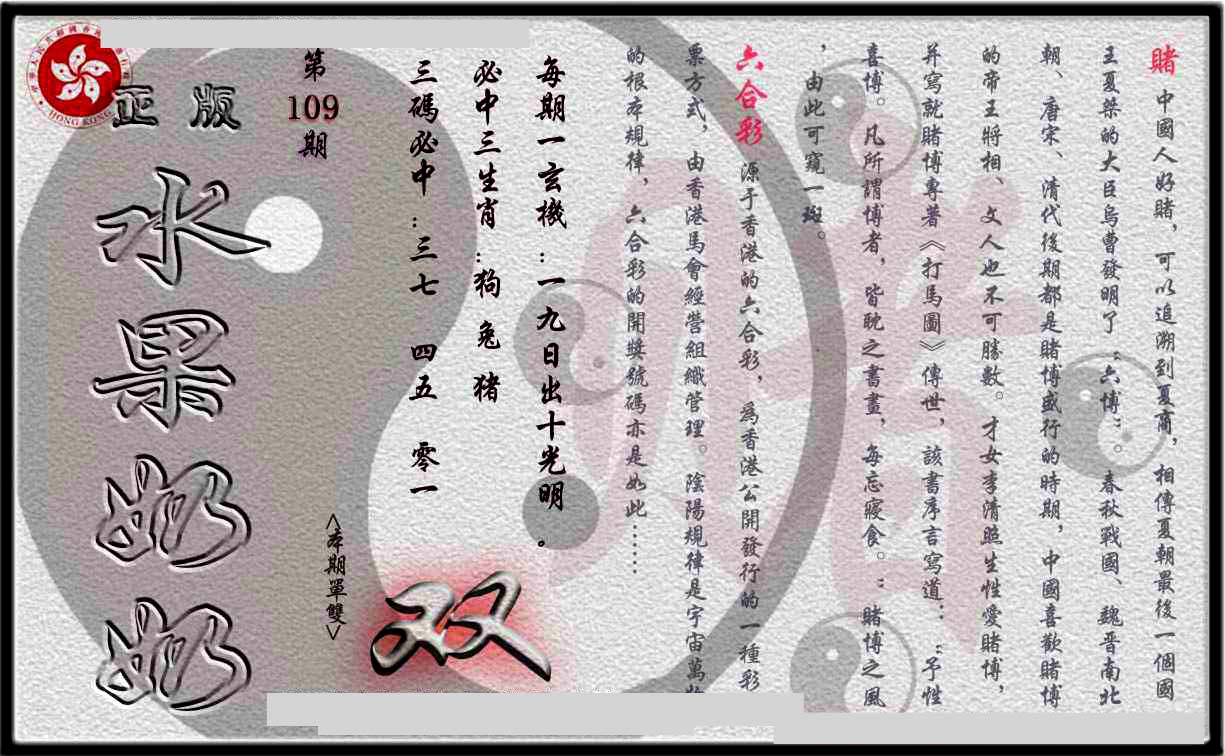 賭 中國人好賭，可以追溯到夏商，相傳夏朝最後一個國
王夏桀的大臣烏曹發明了“六博”。春秋戰國、魏晋南北
朝、唐宋、清代後期都是賭博盛行的時期，中國喜歡賭博
的帝王將相、文人也不可勝數。才女李清照生性愛賭博，
并寫就賭博專著《打馬圖》傳世，該書序言寫道：“予性
喜博。凡所謂博者，皆耽之書畫，每忘寢食。“賭博之風
，由此可窺一斑。
六合彩 源于香港的六合彩，爲香港公開發行的一種彩
票方式，由香港馬會經營組織管理。陰陽規律是宇宙萬物
的根本規律，六合彩的開獎號碼亦是如此……
每期一玄機：一九日出十光明。
必中三生肖：狗 兔 猪
三碼必中：三七 四五 零一
第109期
<本期單雙>
双
正版
水果奶奶
HONG KONG